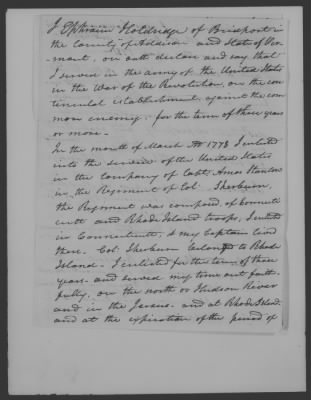 I Ephraim Holdridge of Bridport in
the County of Addison and State of Ver-
mont, on oath declare and say that
I served in the army of the United States
in the War of the Revolution, on the con
tinental establishment, against the com
mon enemy, for the term of three years
or more.
In the month of March AD 1778 I enlisted
into the service of the United States
in the Company of Capt. Amos Stanton
in the Regiment of Col. Sherburn,
the Regiment was composed of Connecti
cutt and Rhode Island troops, I enlisted
in Connecticutt, & my Captain lived
there. Col. Sherburn belonged to Rhode
Island. I enlisted for the term of three
years. and served my time out faith-
fully, on the north or Hudson River
and in the Jerseys. and at Rhode Island.
and at the expiration of the period of